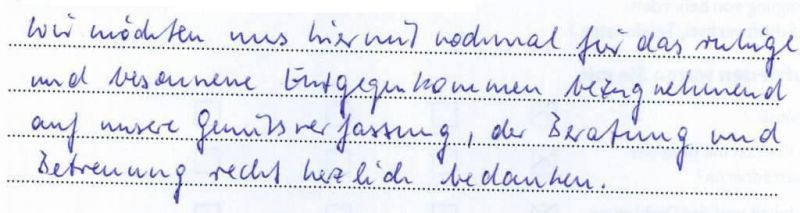 Wir möchten uns hiermit nochmal für das ruhige
und besonnene Entgegenkommen bezugnehmend
auf unsere Gemütsverfassung, der Beratung und
Betreuung recht herzlich bedanken.